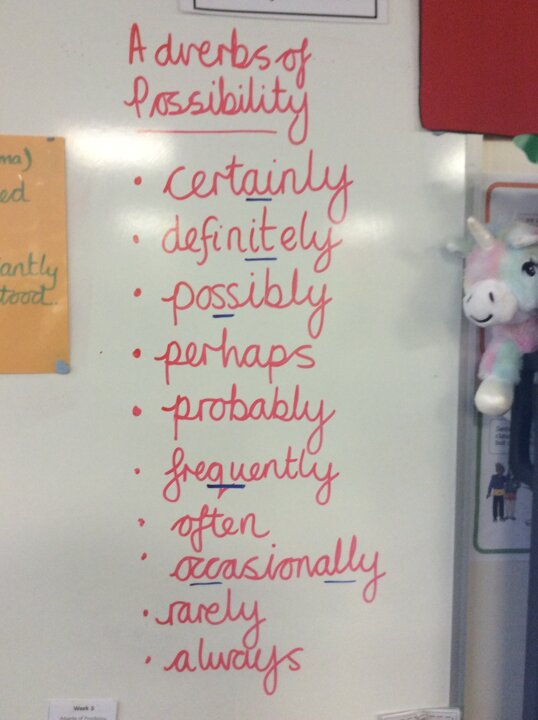 Adverbs of
Possibility
ma)
ed
antly
tood.
• certainly
• definitely
• possibly
• perhaps
• probably
• frequently
• often
• occasionally
• rarely
• always
Week 3